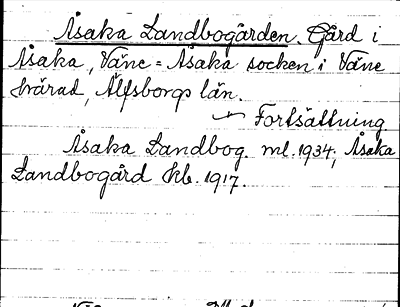 Åsaka Landbogården. Gård i
Åsaka, Väne = Åsaka socken i Väne
härad, Älfsborgs län.
Fortsättning
Åsaka Landbog. ml. 1934; Åsaka
Landbogård kb. 1917.